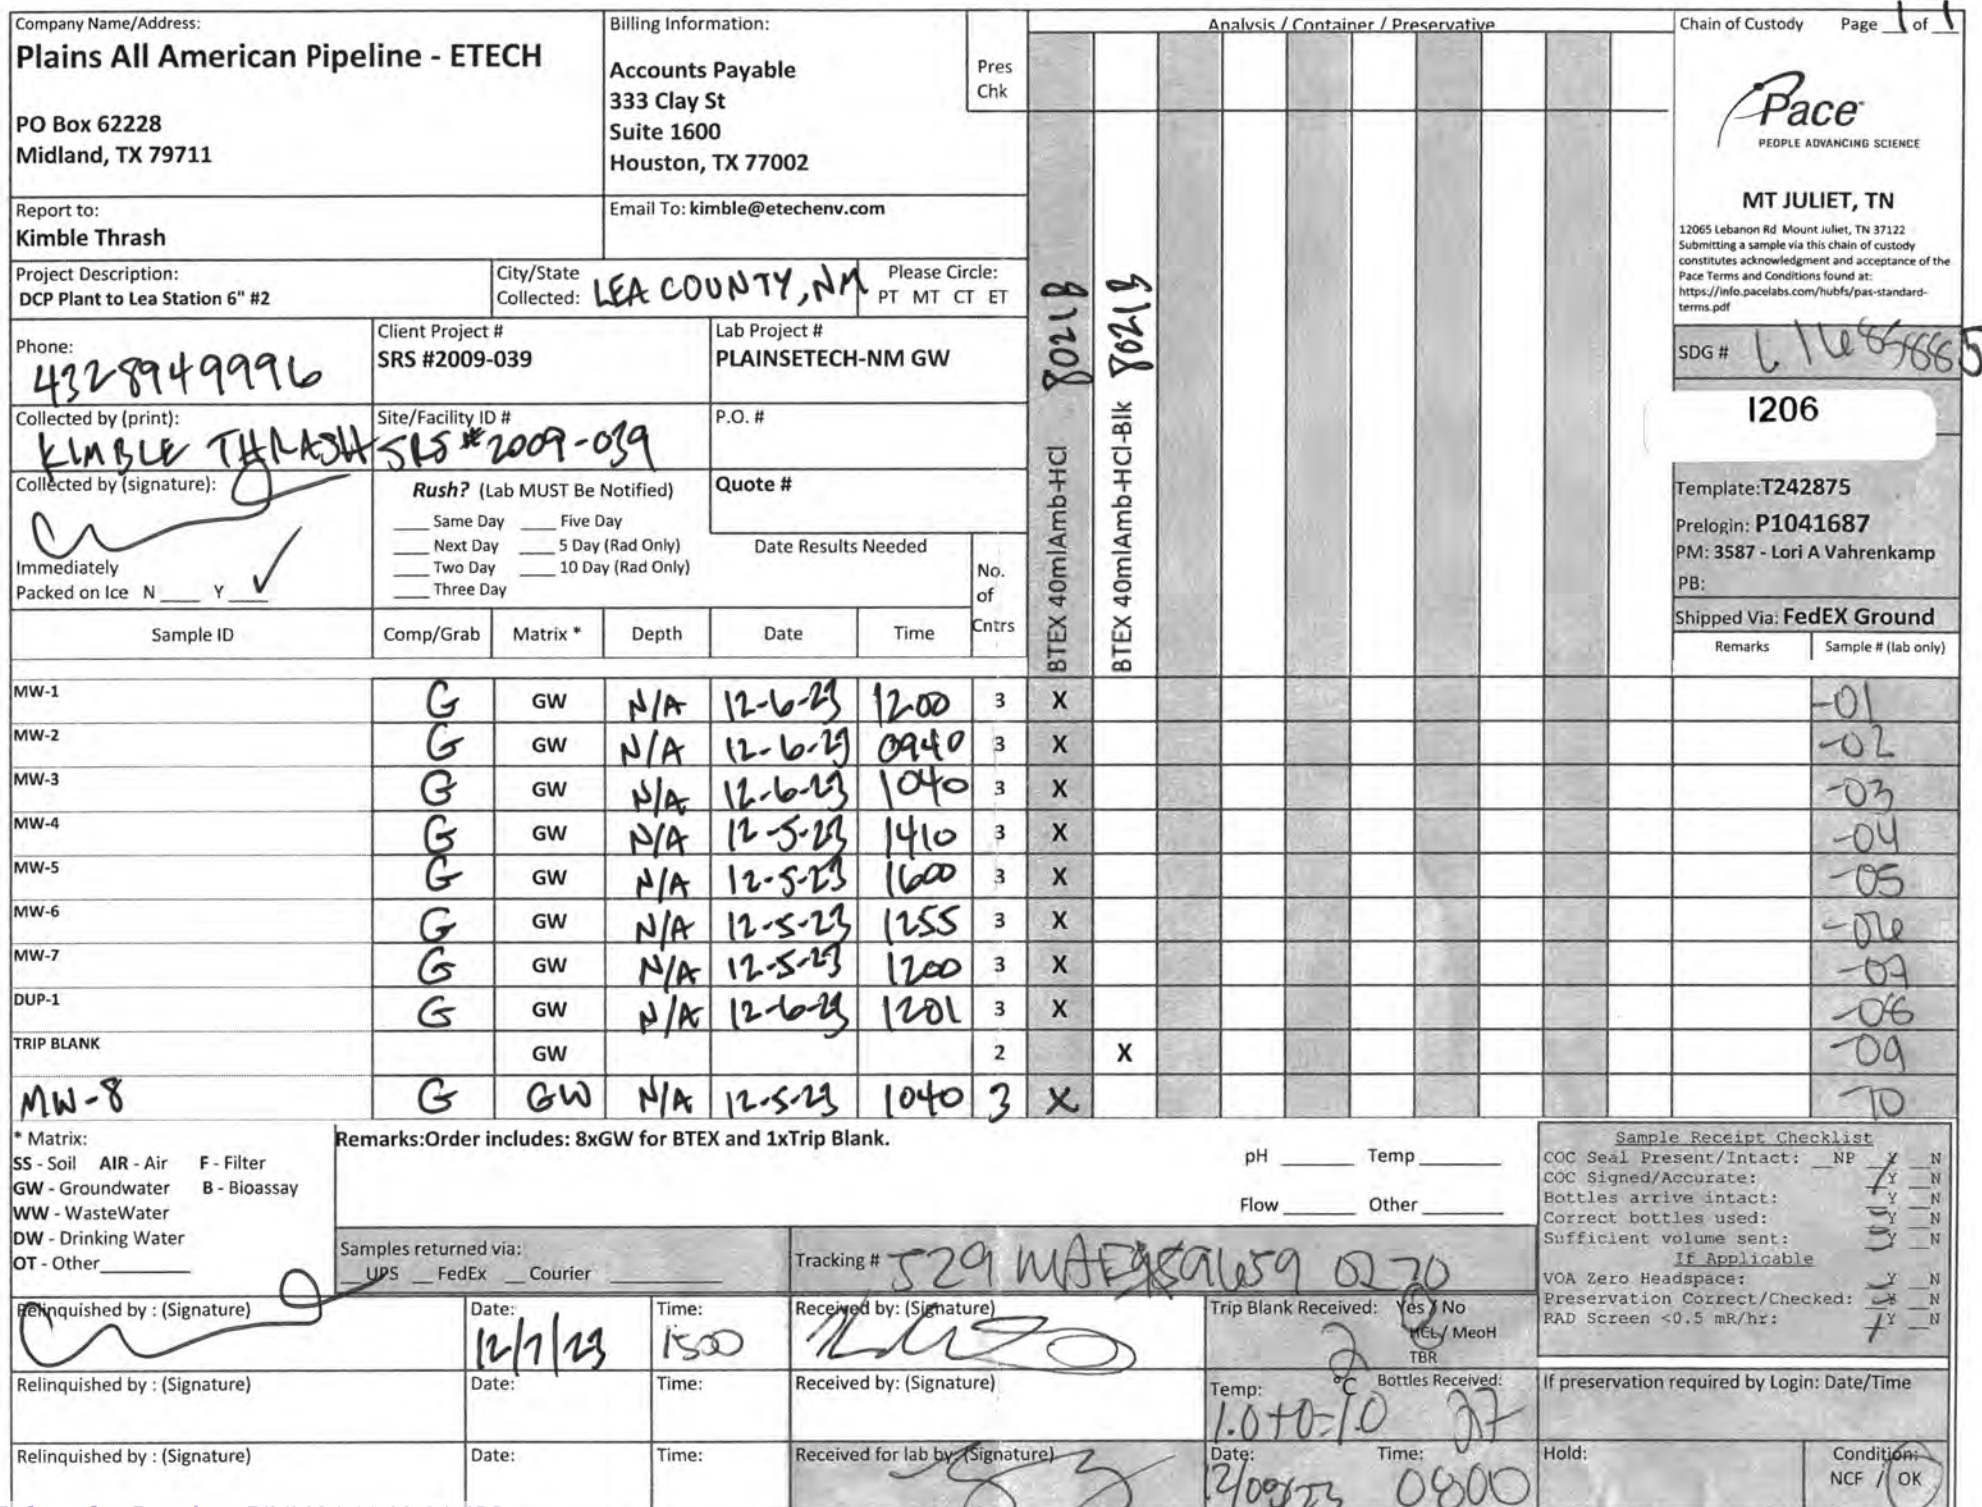 Company Name/Address:
Plains All American Pipeline - ETECH
PO Box 62228
Midland, TX 79711
Billing Information:
Accounts Payable
333 Clay St
Suite 1600
Houston, TX 77002
Pres
Chk
Analysis / Container / Preservative
Chain of Custody Page 1 of 1
Pace
PEOPLE ADVANCING SCIENCE
MT JULIET, TN
12065 Lebanon Rd Mount Juliet, TN 37122
Submitting a sample via this chain of custody
constitutes acknowledgment and acceptance of the
Pace Terms and Conditions found at:
https://info.pacelabs.com/hubfs/pas-standard-
terms.pdf
Report to:
Kimble Thrash
Email To: kimble@etechenv.com
Project Description:
DCP Plant to Lea Station 6" #2
City/State
Collected: LEA COUNTY, NM
Please Circle:
PT MT CT ET
Phone:
4328949996
Client Project #
SRS #2009-039
Lab Project #
PLAINSETECH-NM GW
SDG #
I206
Collected by (print):
KIMBLE THRASH
Site/Facility ID #
SRS #2009-039
P.O. #
Collected by (signature):
Rush? (Lab MUST Be Notified)
Same Day Five Day
Next Day 5 Day (Rad Only)
Two Day 10 Day (Rad Only)
Three Day
Quote #
Date Results Needed
Immediately
Packed on Ice N Y ✓
No.
of
Cntrs
BTEX 40mlAmb-HCl 8021B
BTEX 40mlAmb-HCl-Blk 8021B
Template:T242875
Prelogin: P1041687
PM: 3587 - Lori A Vahrenkamp
PB:
Shipped Via: FedEX Ground
Sample ID Comp/Grab Matrix * Depth Date Time Remarks Sample # (lab only)
MW-1 G GW N/A 12-6-23 1200 3 X -01
MW-2 G GW N/A 12-6-23 0940 3 X -02
MW-3 G GW N/A 12-6-23 1040 3 X -03
MW-4 G GW N/A 12-5-23 1410 3 X -04
MW-5 G GW N/A 12-5-23 1600 3 X -05
MW-6 G GW N/A 12-5-23 1255 3 X -06
MW-7 G GW N/A 12-5-23 1200 3 X -07
DUP-1 G GW N/A 12-6-23 1201 3 X -08
TRIP BLANK GW 2 X -09
MW-8 G GW N/A 12-5-23 1040 3 X -10
* Matrix:
SS - Soil AIR - Air F - Filter
GW - Groundwater B - Bioassay
WW - WasteWater
DW - Drinking Water
OT - Other
Remarks:Order includes: 8xGW for BTEX and 1xTrip Blank.
pH Temp
Flow Other
Samples returned via:
UPS FedEx Courier
Tracking #
Sample Receipt Checklist
COC Seal Present/Intact: NP Y N
COC Signed/Accurate: Y N
Bottles arrive intact: Y N
Correct bottles used: Y N
Sufficient volume sent: Y N
If Applicable
VOA Zero Headspace: Y N
Preservation Correct/Checked: Y N
RAD Screen <0.5 mR/hr: Y N
Relinquished by : (Signature)
Date:
12/7/23
Time:
1500
Received by: (Signature)
Trip Blank Received: Yes / No
2 HCL / MeoH
TBR
Relinquished by : (Signature)
Date:
Time:
Received by: (Signature)
Temp: °C Bottles Received:
1.0+0=1.0
If preservation required by Login: Date/Time
Relinquished by : (Signature)
Date:
Time:
Received for lab by: (Signature)
Date: Time:
12/09/23 0800
Hold:
Condition:
NCF / OK